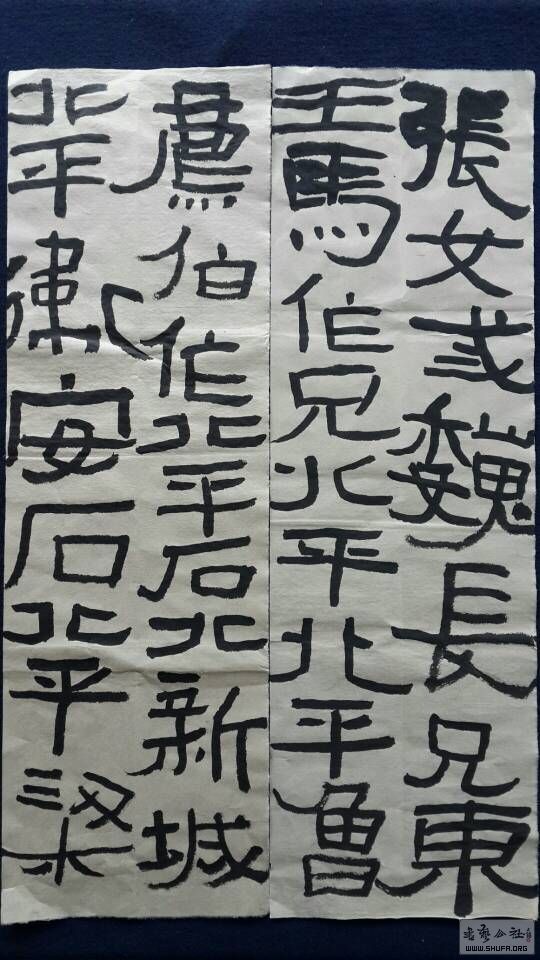 張文魏長兄東
王馬兄北平北平魯
伯北平石北新城
北平安石北平梁
WWW.SHUFA.ORG